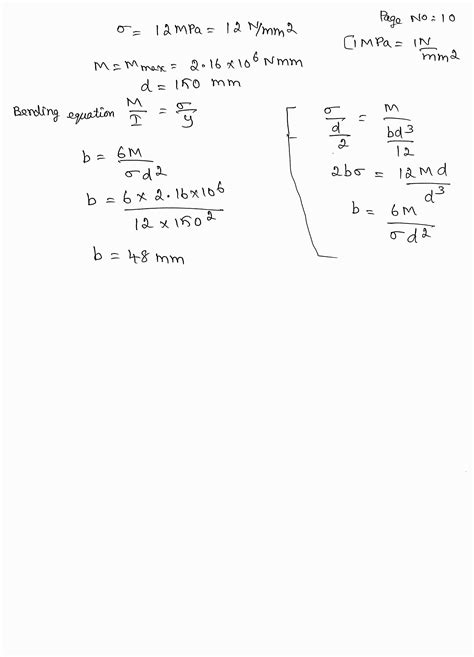 Page No:10
σ = 12MPa = 12 N/mm2
[1MPa = 1N/mm2
M = Mmax = 2.16×10^6 Nmm
d = 150 mm
Bending equation M/I = σ/y
b = 6M/σd2
b = 6 × 2.16×10^6/12×150^2
b = 48 mm
σ/(d/2) = M/(bd^3/12)
2bσ = 12Md/d^3
b = 6M/σd2